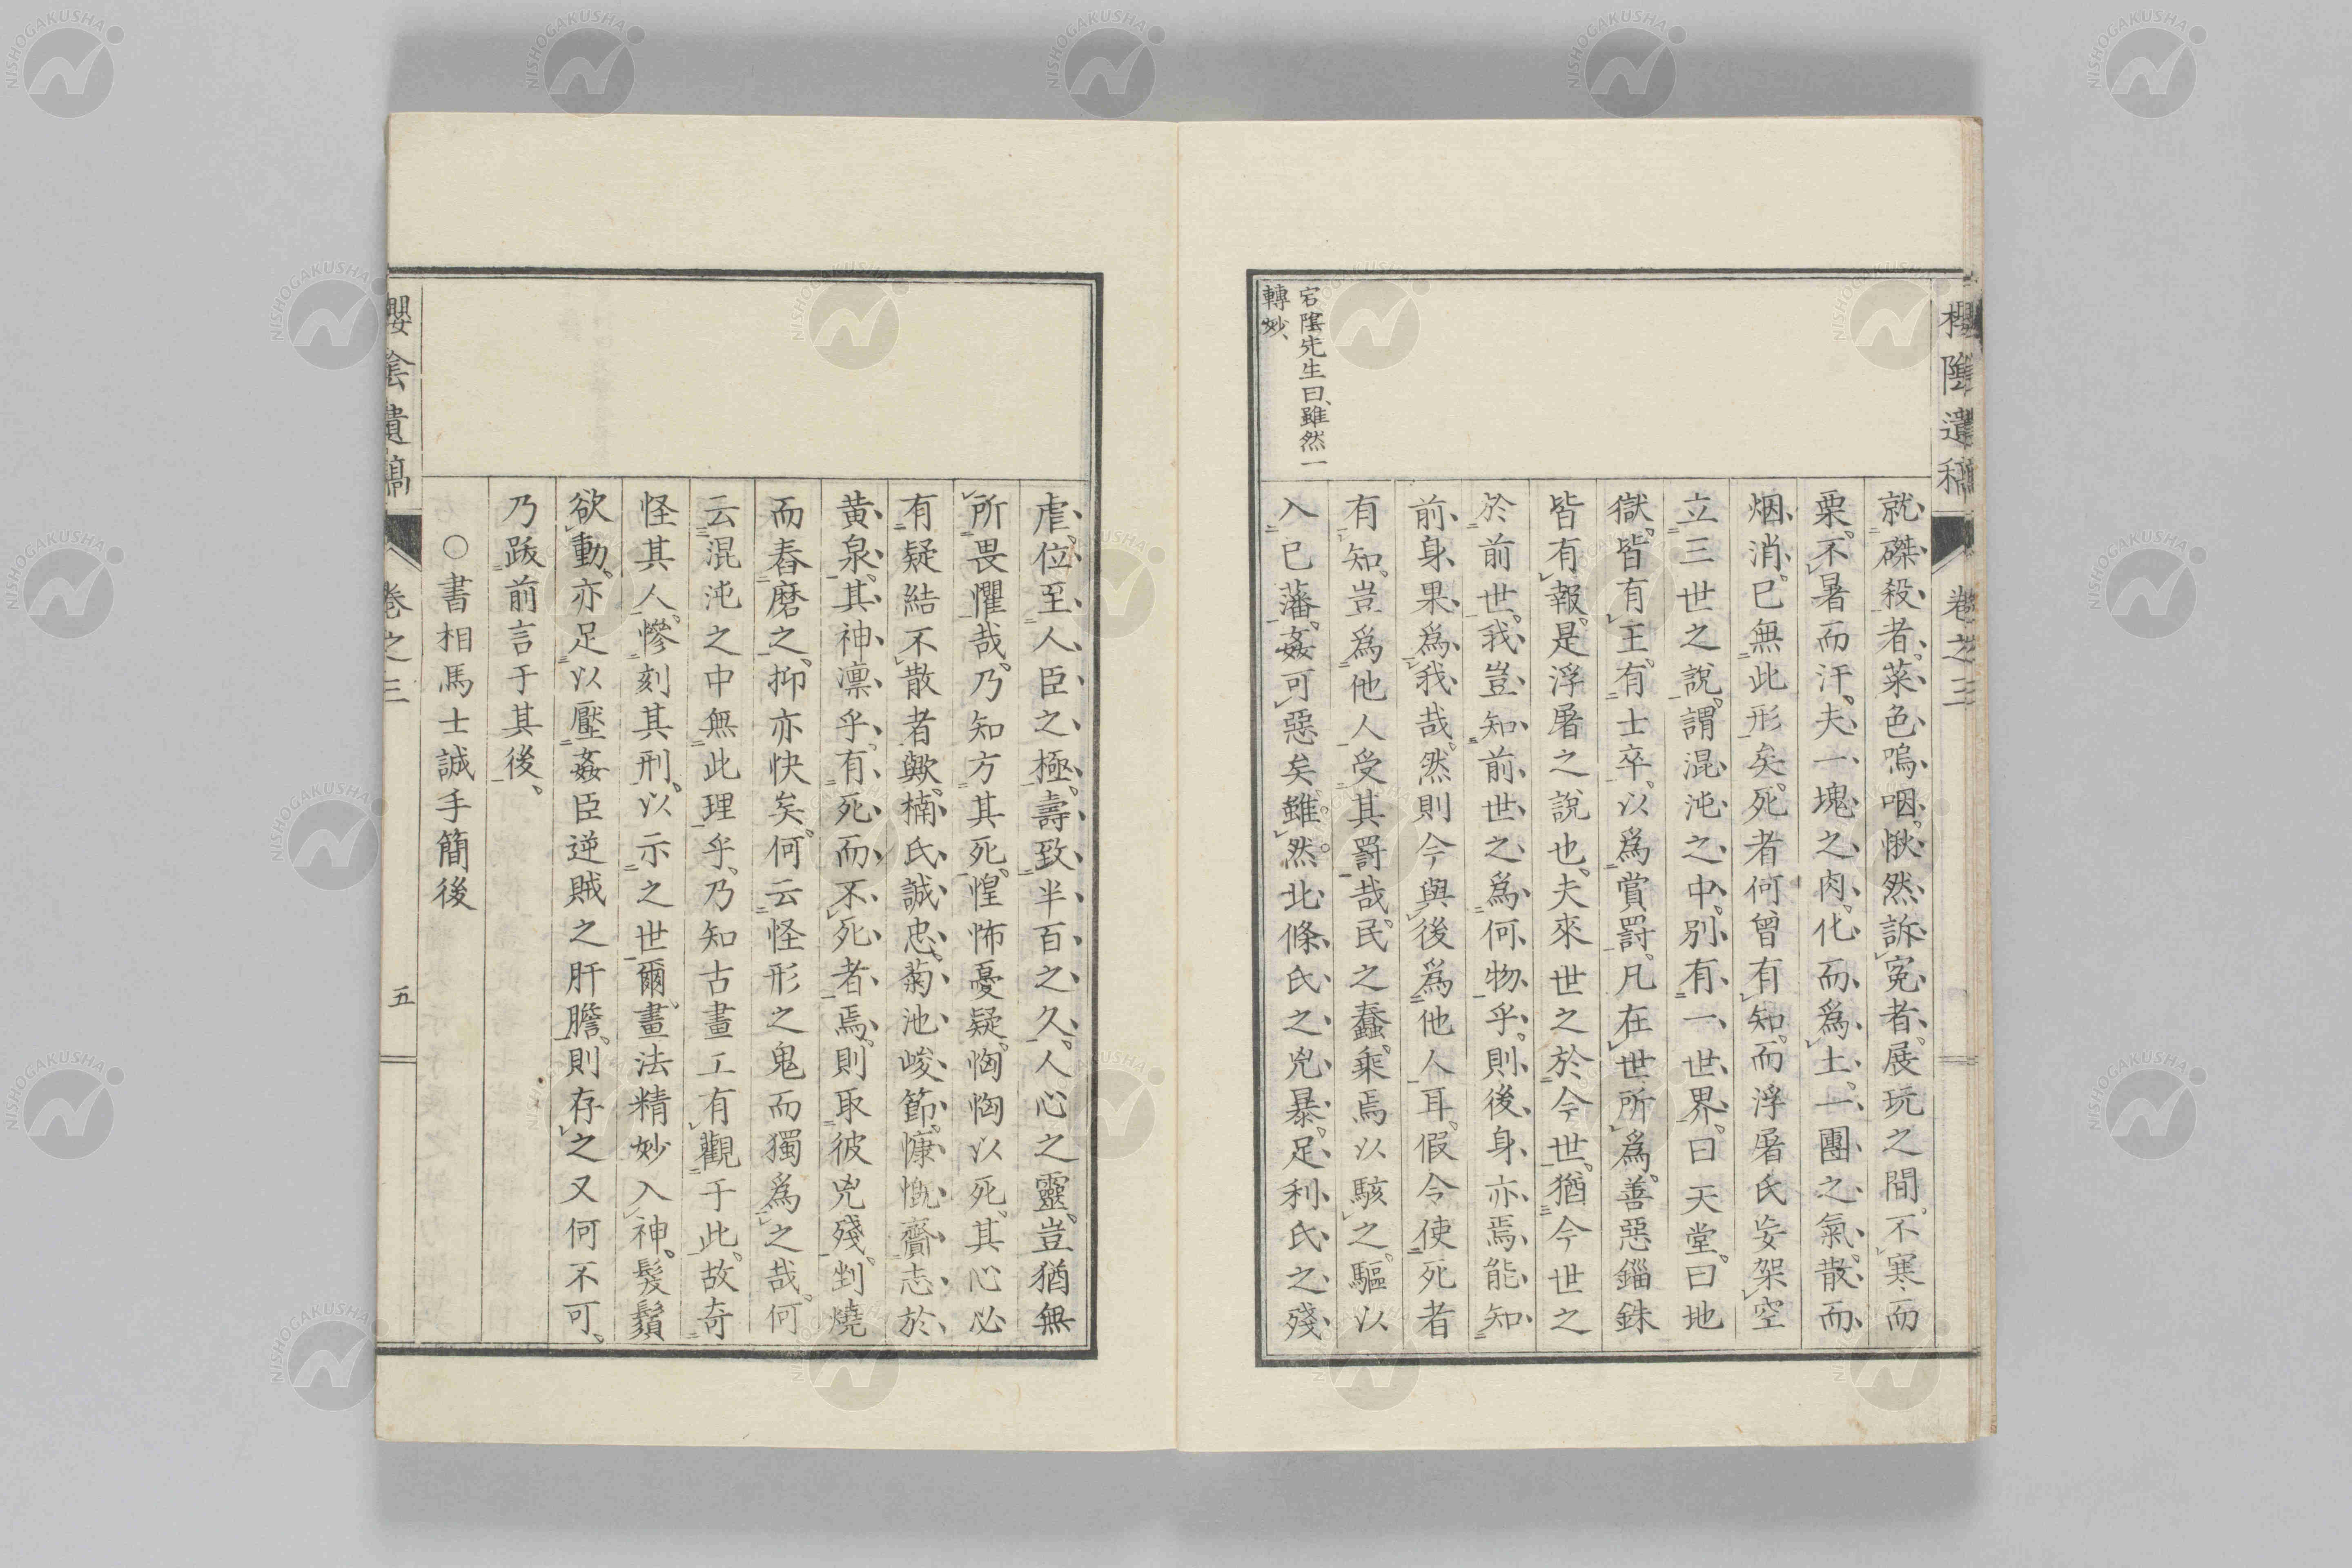 櫻陰遺稿
卷之三
就磔殺者。菜色嗚咽。愀然訴冤者。展玩之間。不寒而
栗。不暑而汗。夫一塊之肉。化而爲土。一團之氣。散而
烟消。已無此形矣。死者何曾有知。而浮屠氏妄架空
立三世之說。謂混沌之中。別有一世界。曰天堂。曰地
獄。皆有王。有士卒。以爲賞罰。凡在世所爲。善惡錙銖
皆有報。是浮屠之說也。夫來世之於今世。猶今世之
於前世。我豈知前世之爲何物乎。則後身亦焉能知
前身果爲我哉。然則今與後爲他人耳。假令使死者
有知。豈爲他人受其罰哉。民之蠢。乘焉以駭之。驅以
入已藩。姦可惡矣。雖然北條氏之兇暴。足利氏之殘
宕陰先生曰、雖然一
轉妙、
虐。位至人臣之極。壽致半百之久。人心之靈。豈猶無
所畏懼哉。乃知方其死。惶怖憂疑。恟恟以死。其心必
有疑結不散者歟。楠氏誠忠。菊池峻節。慷慨齎志於
黄泉。其神凛乎。有死而不死者焉。則取彼兇殘。剉燒
而舂磨之。抑亦快矣。何云怪形之鬼而獨爲之哉。何
云混沌之中無此理乎、乃知古畫工有觀于此。故奇
怪其人。慘刻其刑。以示之世爾。畫法精妙入神。髮鬚
欲動。亦足以壓姦臣逆賊之肝膽。則存之又何不可。
乃跋前言于其後、
○書相馬士誠手簡後
櫻陰遺稿
卷之三
五